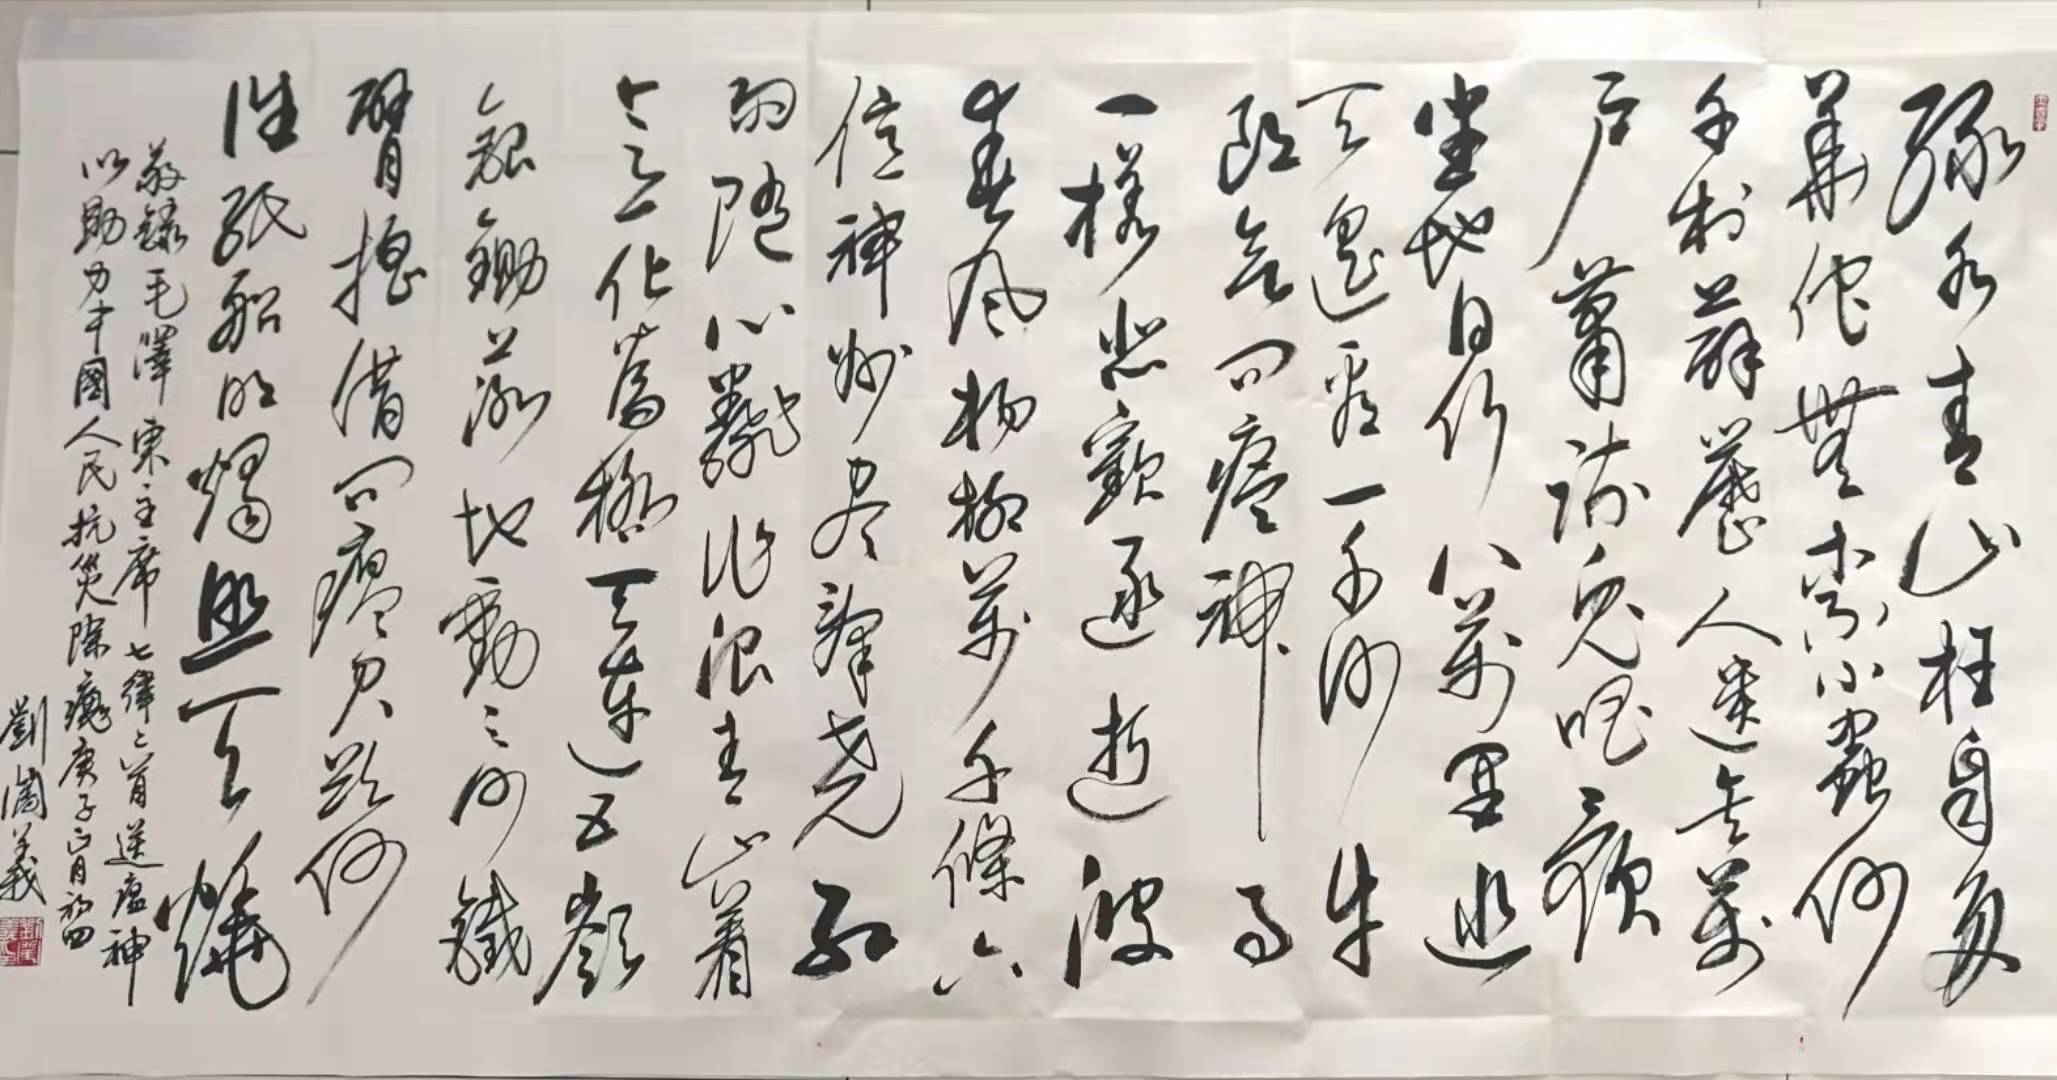 綠水青山枉自多
華佗無奈小蟲何
千村薜荔人遺矢萬
戶蕭疏鬼唱歌
坐地日行八萬里巡
天遥看一千河牛
郎欲问瘟神事
一樣悲歡逐逝波
春風楊柳萬千條六
億神州尽舜尧紅
雨随心翻作浪青山着
意化為橋天連五嶺
銀鋤落地動三河鐵
臂摇借问瘟君欲何
往纸船明燭照天燒
敬錄毛澤東主席七律二首送瘟神
以助力中國人民抗災除庚子正月初四
劉義